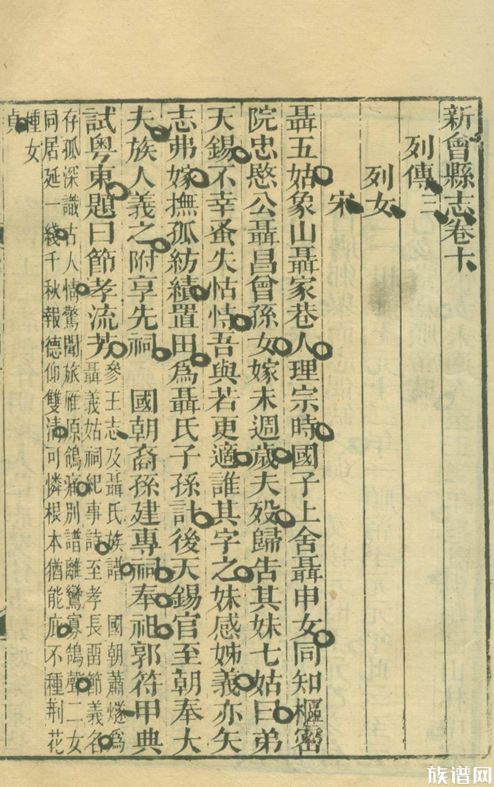 新會縣志卷十
列傳三
列女
宋
聶五姑象山聶家巷人理宗時國子上舍聶申女同知樞密
院忠愍公聶昌曾孫女嫁未週歲夫歿歸告其妹七姑曰弟
天錫不幸蚤失怙恃吾與若更適誰其字之妹感姊義亦矢
志弗嫁撫孤紡績置田為聶氏子孫計後天錫官至朝奉大
夫族人義之附享先祠 國朝裔孫建專祠奉祖郭符甲典
試粵東題曰節孝流芳參王志及聶氏族譜 國朝蕭燧為
聶義姑祠紀事詩至孝長畱節義名
存孤深識古人情驚聞旅雁原鴒痛別譜離鸞寡鵠聲二女
同居延一綫千秋報德仰雙清可憐根本猶能庇不種荊花
種女
貞
族谱网
www.zupu.cn